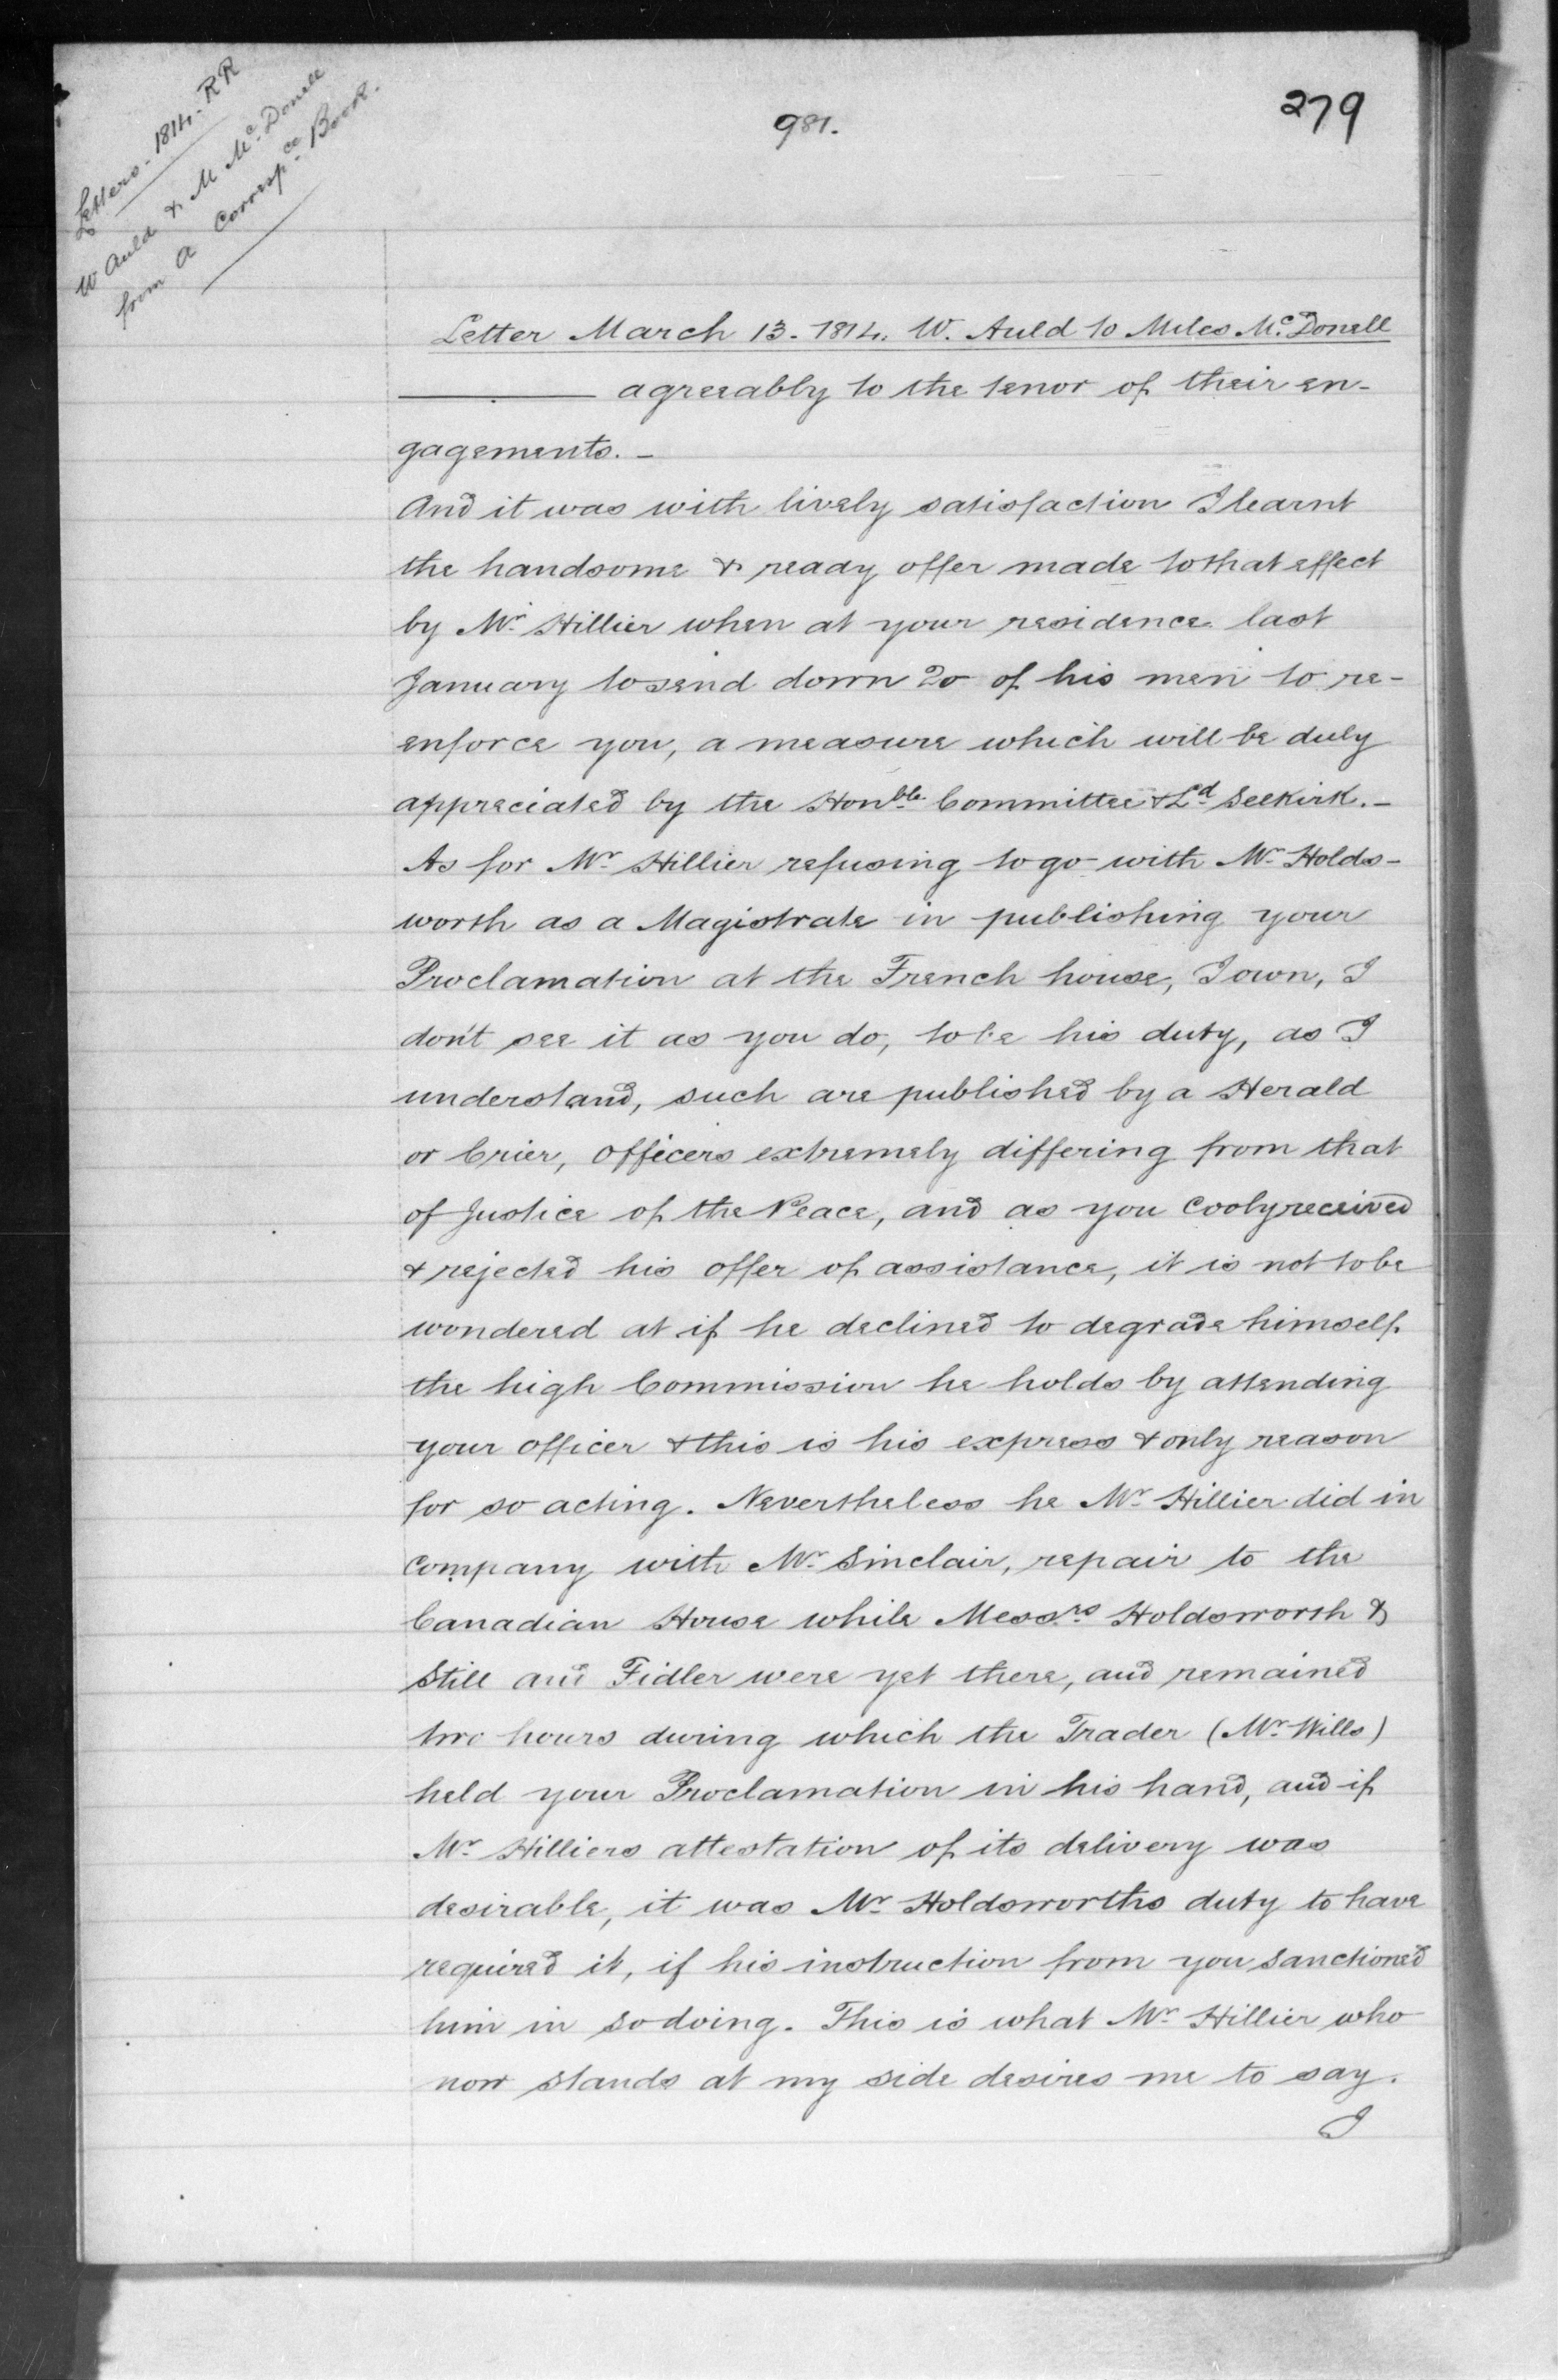 Letters - 1814 - RR
W Auld & M McDonell
from a Correspce Book.
981.
279
Letter March 13 - 1814. W. Auld to Miles McDonell
——— agreeably to the tenor of their en-
gagements. -
And it was with lively satisfaction I learnt
the handsome & ready offer made to that effect
by Mr Hillier when at your residence last
January to send down 20 of his men to re-
enforce you, a measure which will be duly
appreciated by the Honble Committee & Ld Selkirk. -
As for Mr Hillier refusing to go with Mr Holds-
worth as a Magistrate in publishing your
Proclamation at the French house, I own, I
don't see it as you do, to be his duty, as I
understand, such are published by a Herald
or Crier, officers extremely differing from that
of Justice of the Peace, and as you cooly received
& rejected his offer of assistance, it is not to be
wondered at if he declined to degrade himself
the high Commission he holds by attending
your officer & this is his express & only reason
for so acting. Nevertheless he Mr Hillier did in
company with Mr Sinclair, repair to the
Canadian House while Messrs Holdsworth &
Still and Fidler were yet there, and remained
two hours during which the Trader (Mr Wills)
held your Proclamation in his hand, and if
Mr Hilliers attestation of its delivery was
desirable, it was Mr Holdsworths duty to have
required it, if his instruction from you sanctioned
him in so doing. This is what Mr Hillier who
now stands at my side desires me to say.
I